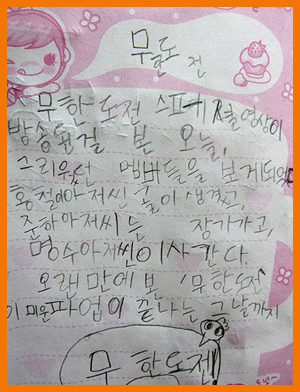 무한도전
무한도전 스페셜영상이
방송된걸 본 오늘,
그리웠던 멤버들을 보게되었다
홍철아저씬 출이 생겼고,
준하아저씨는 장가가고,
명수아저씬이사 간다.
오래만에 본 '무한도전
기 미운파업이 끝나는 그날까지
무한도전